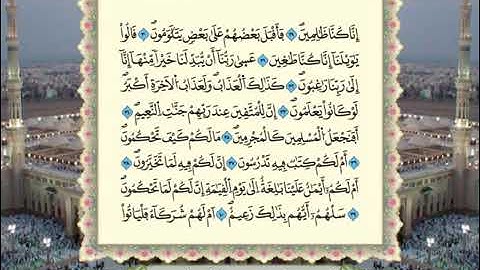 اِنَّا كُنَّا ظٰلِمِيْنَ ﴿٢٩﴾ فَاَقْبَلَ بَعْضُهُمْ عَلٰى بَعْضٍ يَّتَلَاوَمُوْنَ ﴿٣٠﴾ قَالُوْا
يٰوَيْلَنَآ اِنَّا كُنَّا طٰغِيْنَ ﴿٣١﴾ عَسٰى رَبُّنَآ اَنْ يُّبْدِلَنَا خَيْرًا مِّنْهَآ اِنَّآ
اِلٰى رَبِّنَا رٰغِبُوْنَ ﴿٣٢﴾ كَذٰلِكَ الْعَذَابُ ۗ وَلَعَذَابُ الْاٰخِرَةِ اَكْبَرُ ۘ
لَوْ كَانُوْا يَعْلَمُوْنَ ﴿٣٣﴾ اِنَّ لِلْمُتَّقِيْنَ عِنْدَ رَبِّهِمْ جَنّٰتِ النَّعِيْمِ ﴿٣٤﴾
اَفَنَجْعَلُ الْمُسْلِمِيْنَ كَالْمُجْرِمِيْنَ ﴿٣٥﴾ مَا لَكُمْ ۗ كَيْفَ تَحْكُمُوْنَ
﴿٣٦﴾ اَمْ لَكُمْ كِتٰبٌ فِيْهِ تَدْرُسُوْنَ ﴿٣٧﴾ اِنَّ لَكُمْ فِيْهِ لَمَا تَخَيَّرُوْنَ ﴿٣٨﴾
اَمْ لَكُمْ اَيْمَانٌ عَلَيْنَا بَالِغَةٌ اِلٰى يَوْمِ الْقِيٰمَةِ ۙ اِنَّ لَكُمْ لَمَا تَحْكُمُوْنَ
﴿٣٩﴾ سَلْهُمْ اَيُّهُمْ بِذٰلِكَ زَعِيْمٌ ﴿٤٠﴾ اَمْ لَهُمْ شُرَكَآءُ ۛ فَلْيَأْتُوْا